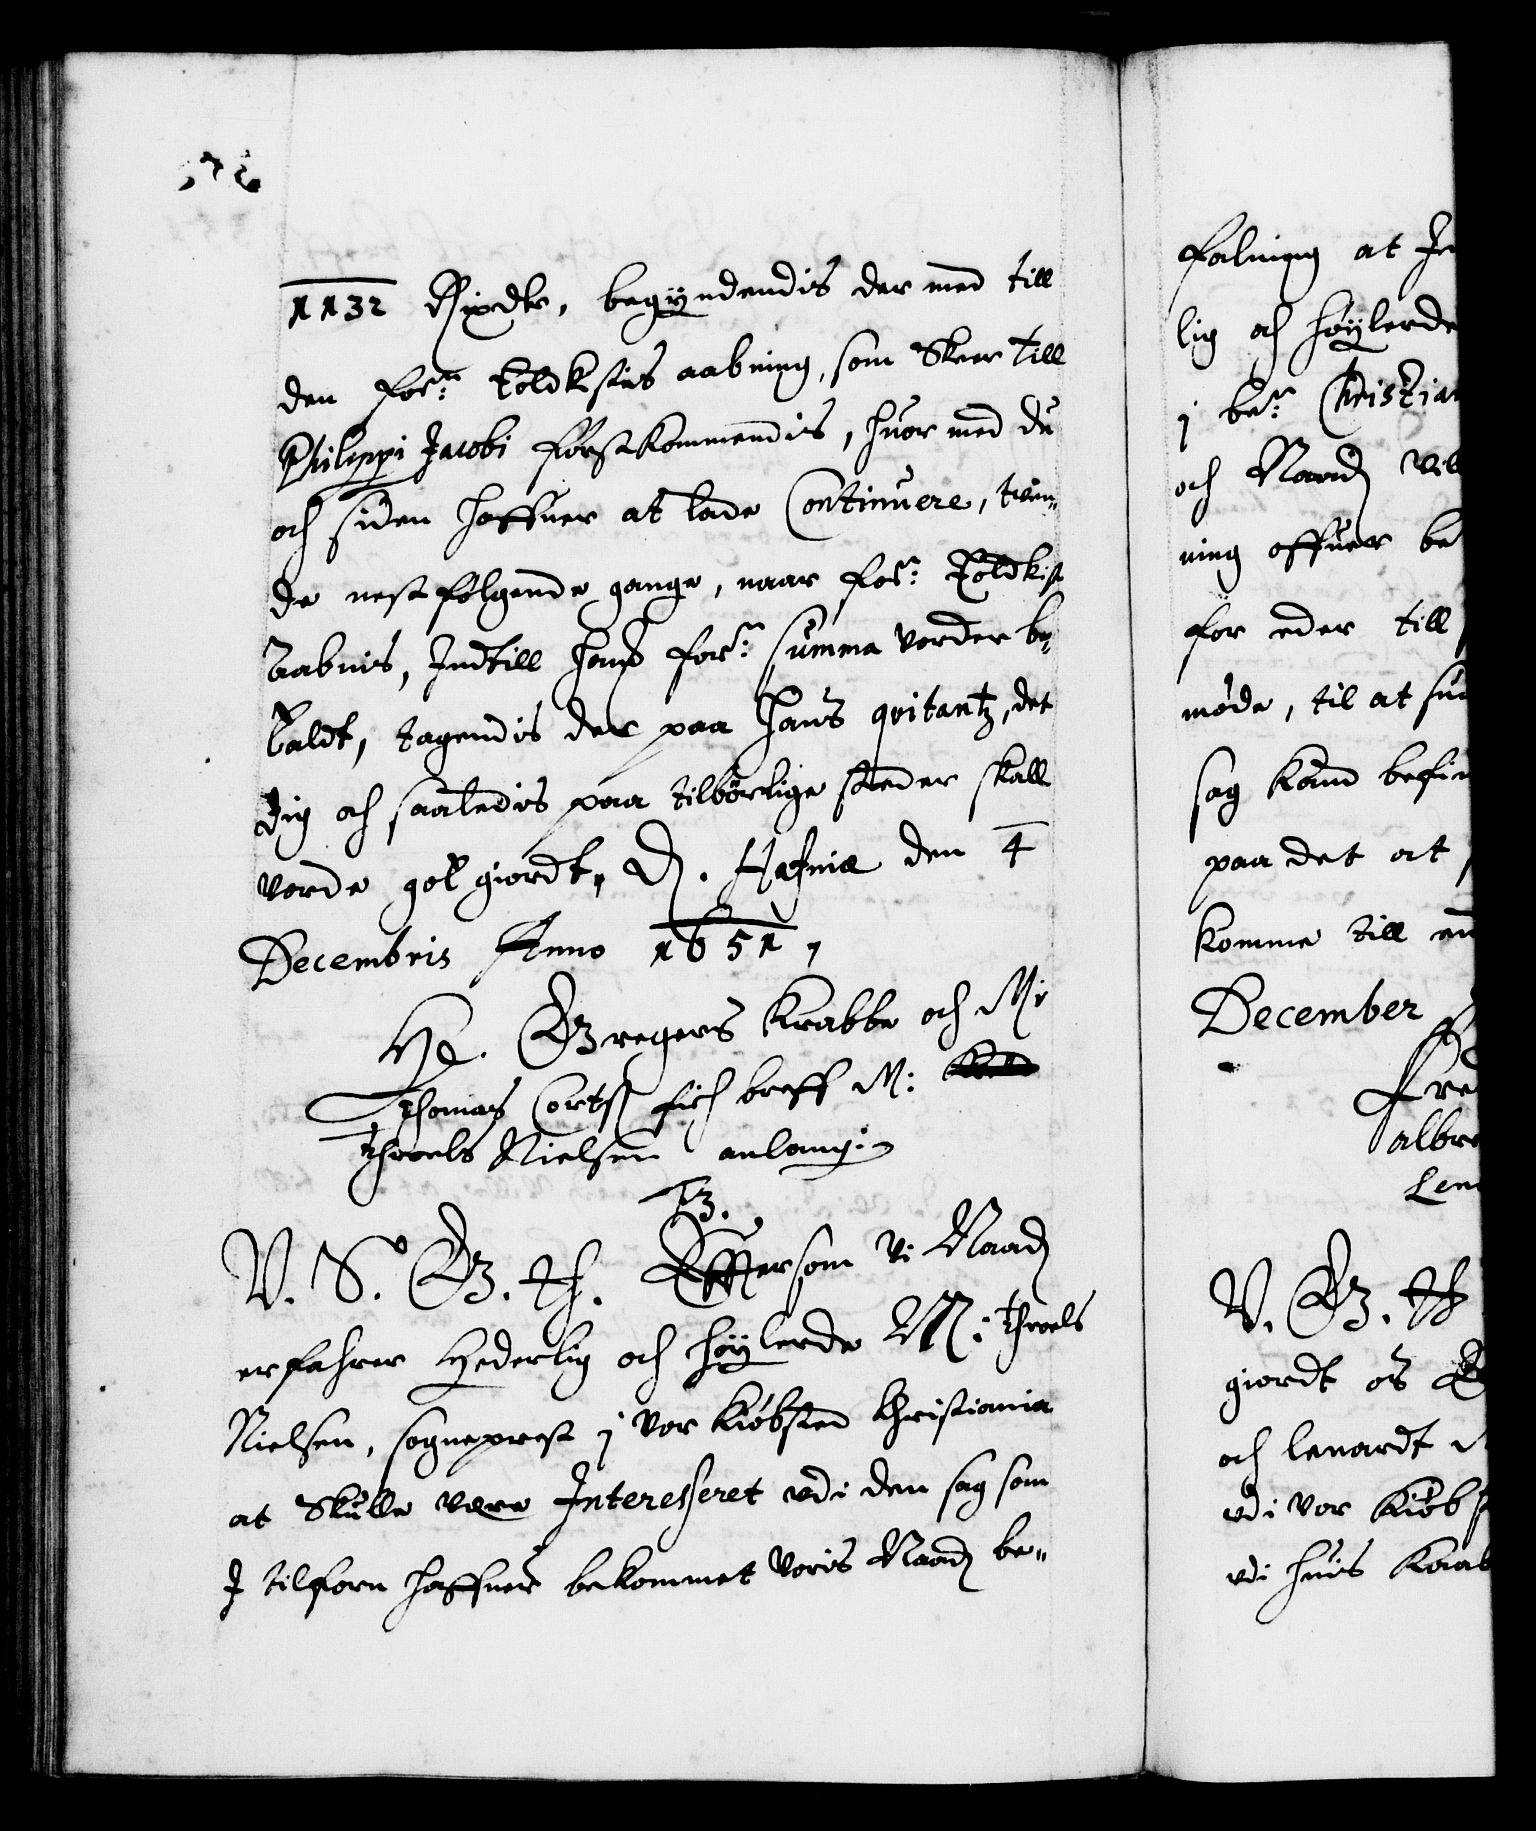 1132 Rixdlr, begyndendis der med till
den for:ne Toldkistis aabning, som Skeer till
Philippi Jacobi förstkommendis, huor med du
och siden haffuer at lade Continuere, tuen-
de nest fölgende gange, naar for:ne Toldkist
Aabnis, Indtill hans for:ne Summa vorder be-
taldt, tagendis der paa hans qvitantz, det
dig och saaledis paa tilbörlige steder skall
vorde got giordt, D. Hafniæ den 4
Decembris Anno 1651,
He. Gregers Krabbe och M:
Thomas Cortss fich breff M:
Throels Nielsen anlang:
V. S. G. T. Effttersom Vi Naad
erfahrer Hederlig och höylerde M: Throels
Nielsen, sogneprest j vor Kiöbsted Christiania
at Skulle være Interesseret udi den sag som
J tilforn haffuer bekommet voris Naad be-
falning at
lig och höylerde
j be:te Christian
och Naad vill
ning offuer be
for eder till
möde, til at
sag kand befin
paa det at
komme till
December
Fred
albre
Len
V. G. T
giordt os
och lenardt
udi vor Kiöbs
udi huis Kaab